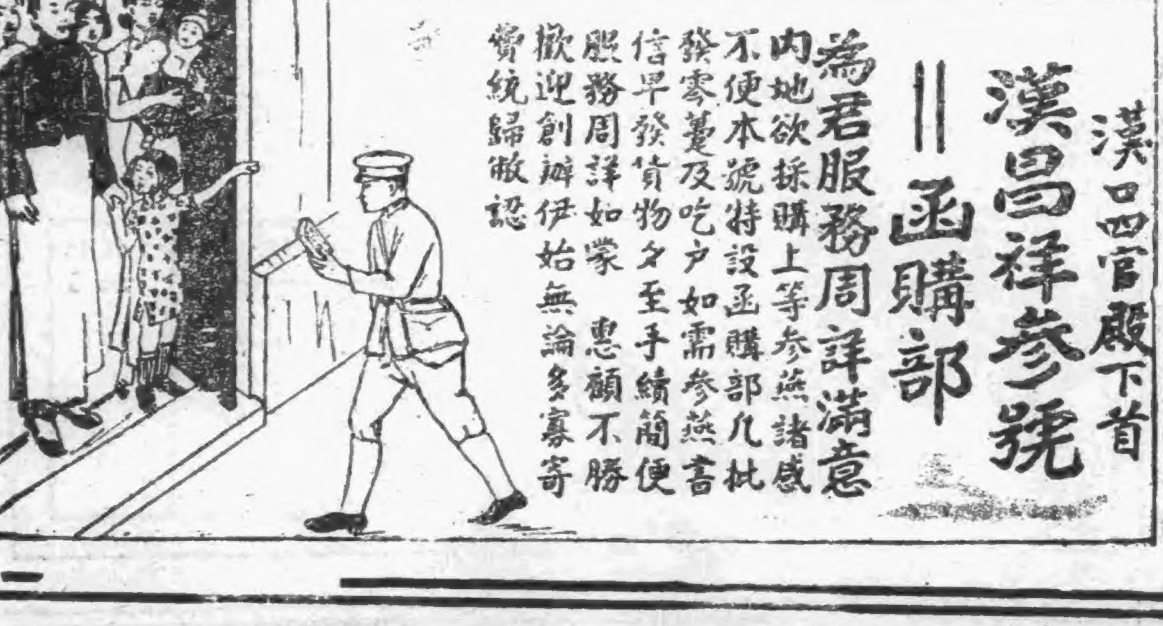 漢口四官殿下首
漢昌祥參號
＝函購部
為君服務周詳滿意
內地欲採購上等参燕諸感
不便本號特設函購部凡批
發零躉及吃户如需參燕書
信早發貨物夕至手續簡便
服務周詳如蒙　惠顧不勝
歡迎創辦伊始無論多寡寄
費統歸敝認